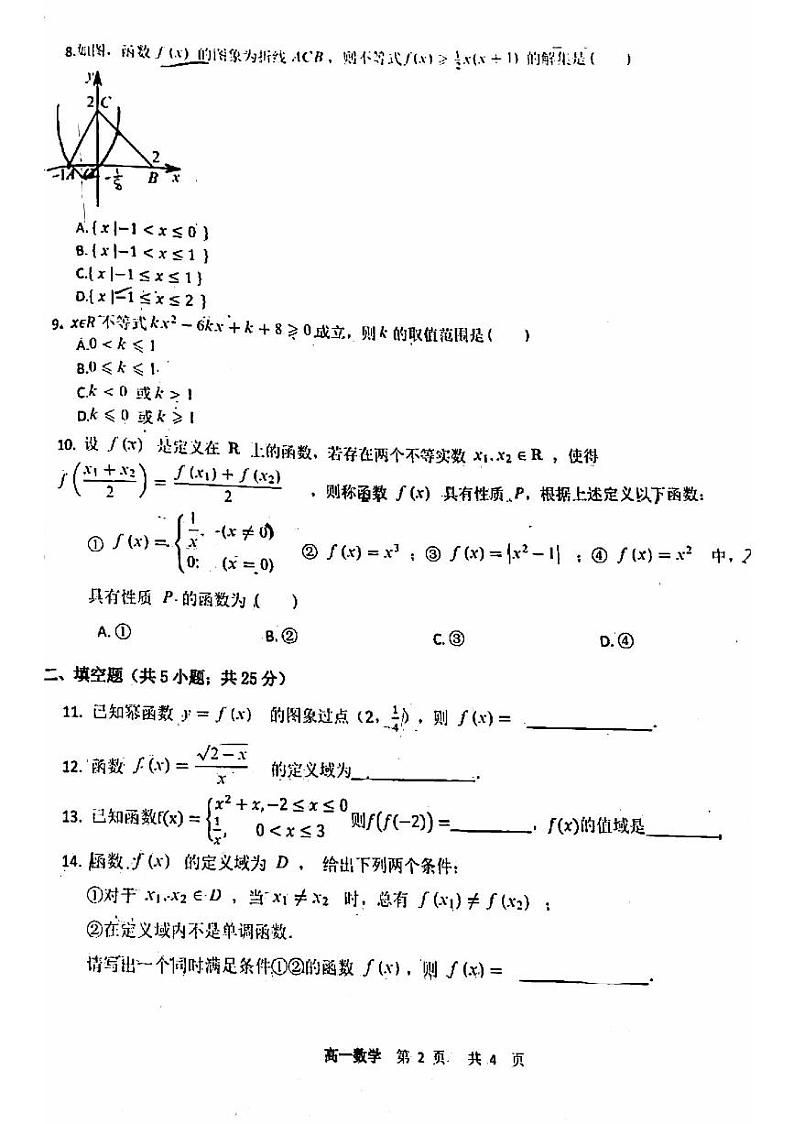 8.如图，函数 f (x) 的图象为折线 ACB，则不等式f(x) ⩾ ½x(x + 1) 的解集是（　　）
y
2 C
-1A 2
-1/8 B x
A.{ x |−1 < x ≤ 0 }
B.{ x |−1 < x ≤ 1 }
C.{ x |−1 ≤ x ≤ 1 }
D.{ x |−1 ≤ x ≤ 2 }
9. x∈R 不等式 kx² − 6kx + k + 8 ⩾ 0 成立，则 k 的取值范围是（　　）
A.0 < k ⩽ 1
B.0 ⩽ k ⩽ 1
C.k < 0 或 k > 1
D.k ⩽ 0 或 k ⩾ 1
10. 设 f (x) 是定义在 R 上的函数，若存在两个不等实数 x₁, x₂ ∈ R ，使得
f((x₁ + x₂)/2) = (f (x₁) + f (x₂))/2 ，则称函数 f (x) 具有性质 P，根据上述定义以下函数：
① f (x) = { 1/x, (x ≠ 0) 0; (x = 0) ② f (x) = x³ ；③ f (x) = |x² − 1| ；④ f (x) = x² 中，2
具有性质 P 的函数为（　　）
A. ① B. ② C. ③ D. ④
二、填空题（共 5 小题；共 25 分）
11. 已知幂函数 y = f (x) 的图象过点（2, 1/4），则 f (x) = ________.
12. 函数 f (x) = √(2 − x)/x 的定义域为________.
13. 已知函数f(x) = { x² + x, −2 ≤ x ≤ 0 1/x, 0 < x ≤ 3 则f(f(−2)) =________，f(x)的值域是________
14. 函数 f (x) 的定义域为 D ， 给出下列两个条件：
①对于 x₁, x₂ ∈ D ，当 x₁ ≠ x₂ 时，总有 f (x₁) ≠ f (x₂) ；
②在定义域内不是单调函数.
请写出一个同时满足条件①②的函数 f (x) ，则 f (x) = ________.
高一数学 第 2 页 共 4 页